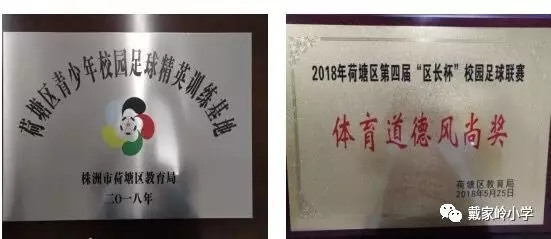 荷塘区青少年校园足球精英训练基地
株洲市荷塘区教育局
二〇一八年
2018年荷塘区第四届“区长杯”校园足球联赛
体育道德风尚奖
荷塘区教育局
2018年5月25日
戴家岭小学